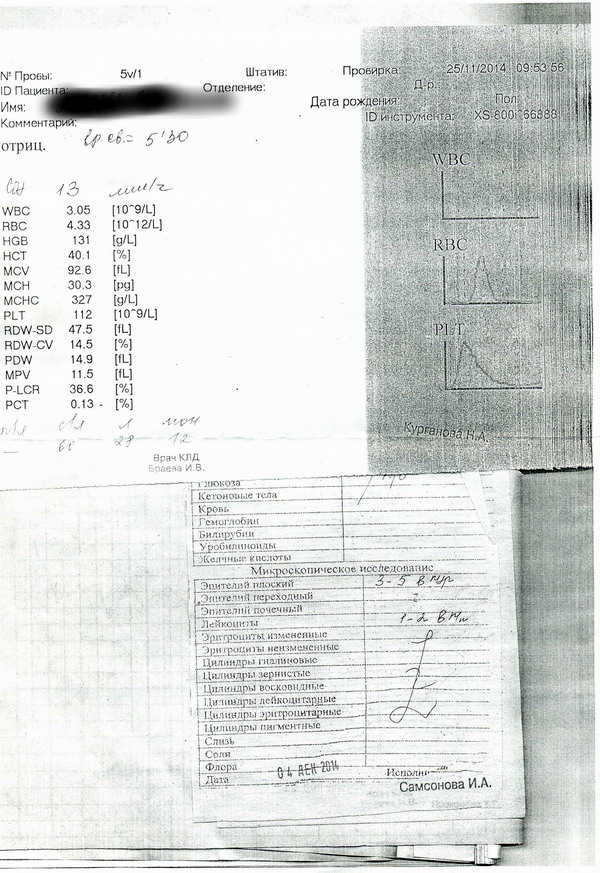 N° Пробы: 5v/1 Штатив: Пробирка: 25/11/2014 09:53:56
ID Пациента: Отделение: Д-р:
Имя: Дата рождения: Пол:
Комментарий: ID инструмента: XS-800i^66888
отриц. Вр.св.= 5'30
СОЭ 13 мм/ч
WBC 3.05 [10^9/L]
RBC 4.33 [10^12/L]
HGB 131 [g/L]
HCT 40.1 [%]
MCV 92.6 [fL]
MCH 30.3 [pg]
MCHC 327 [g/L]
PLT 112 [10^9/L]
RDW-SD 47.5 [fL]
RDW-CV 14.5 [%]
PDW 14.9 [fL]
MPV 11.5 [fL]
P-LCR 36.6 [%]
PCT 0.13 - [%]
п/я с/я л мон
— 60 28 12
WBC
RBC
PLT
Курганова Н.А.
Врач КЛД
Браева И.В.
Глюкоза
Кетоновые тела
Кровь
Гемоглобин
Билирубин
Уробилиноиды
Желчные кислоты
Микроскопическое исследование
Эпителий плоский 3-5 в
Эпителий переходный
Эпителий почечный
Лейкоциты 1-2 в
Эритроциты измененные
Эритроциты неизмененные
Цилиндры гиалиновые
Цилиндры зернистые
Цилиндры восковидные
Цилиндры лейкоцитарные
Цилиндры эритроцитарные
Цилиндры пигментные
Слизь
Соли
Флора
Дата 04 ДЕК 2014
Самсонова И.А.